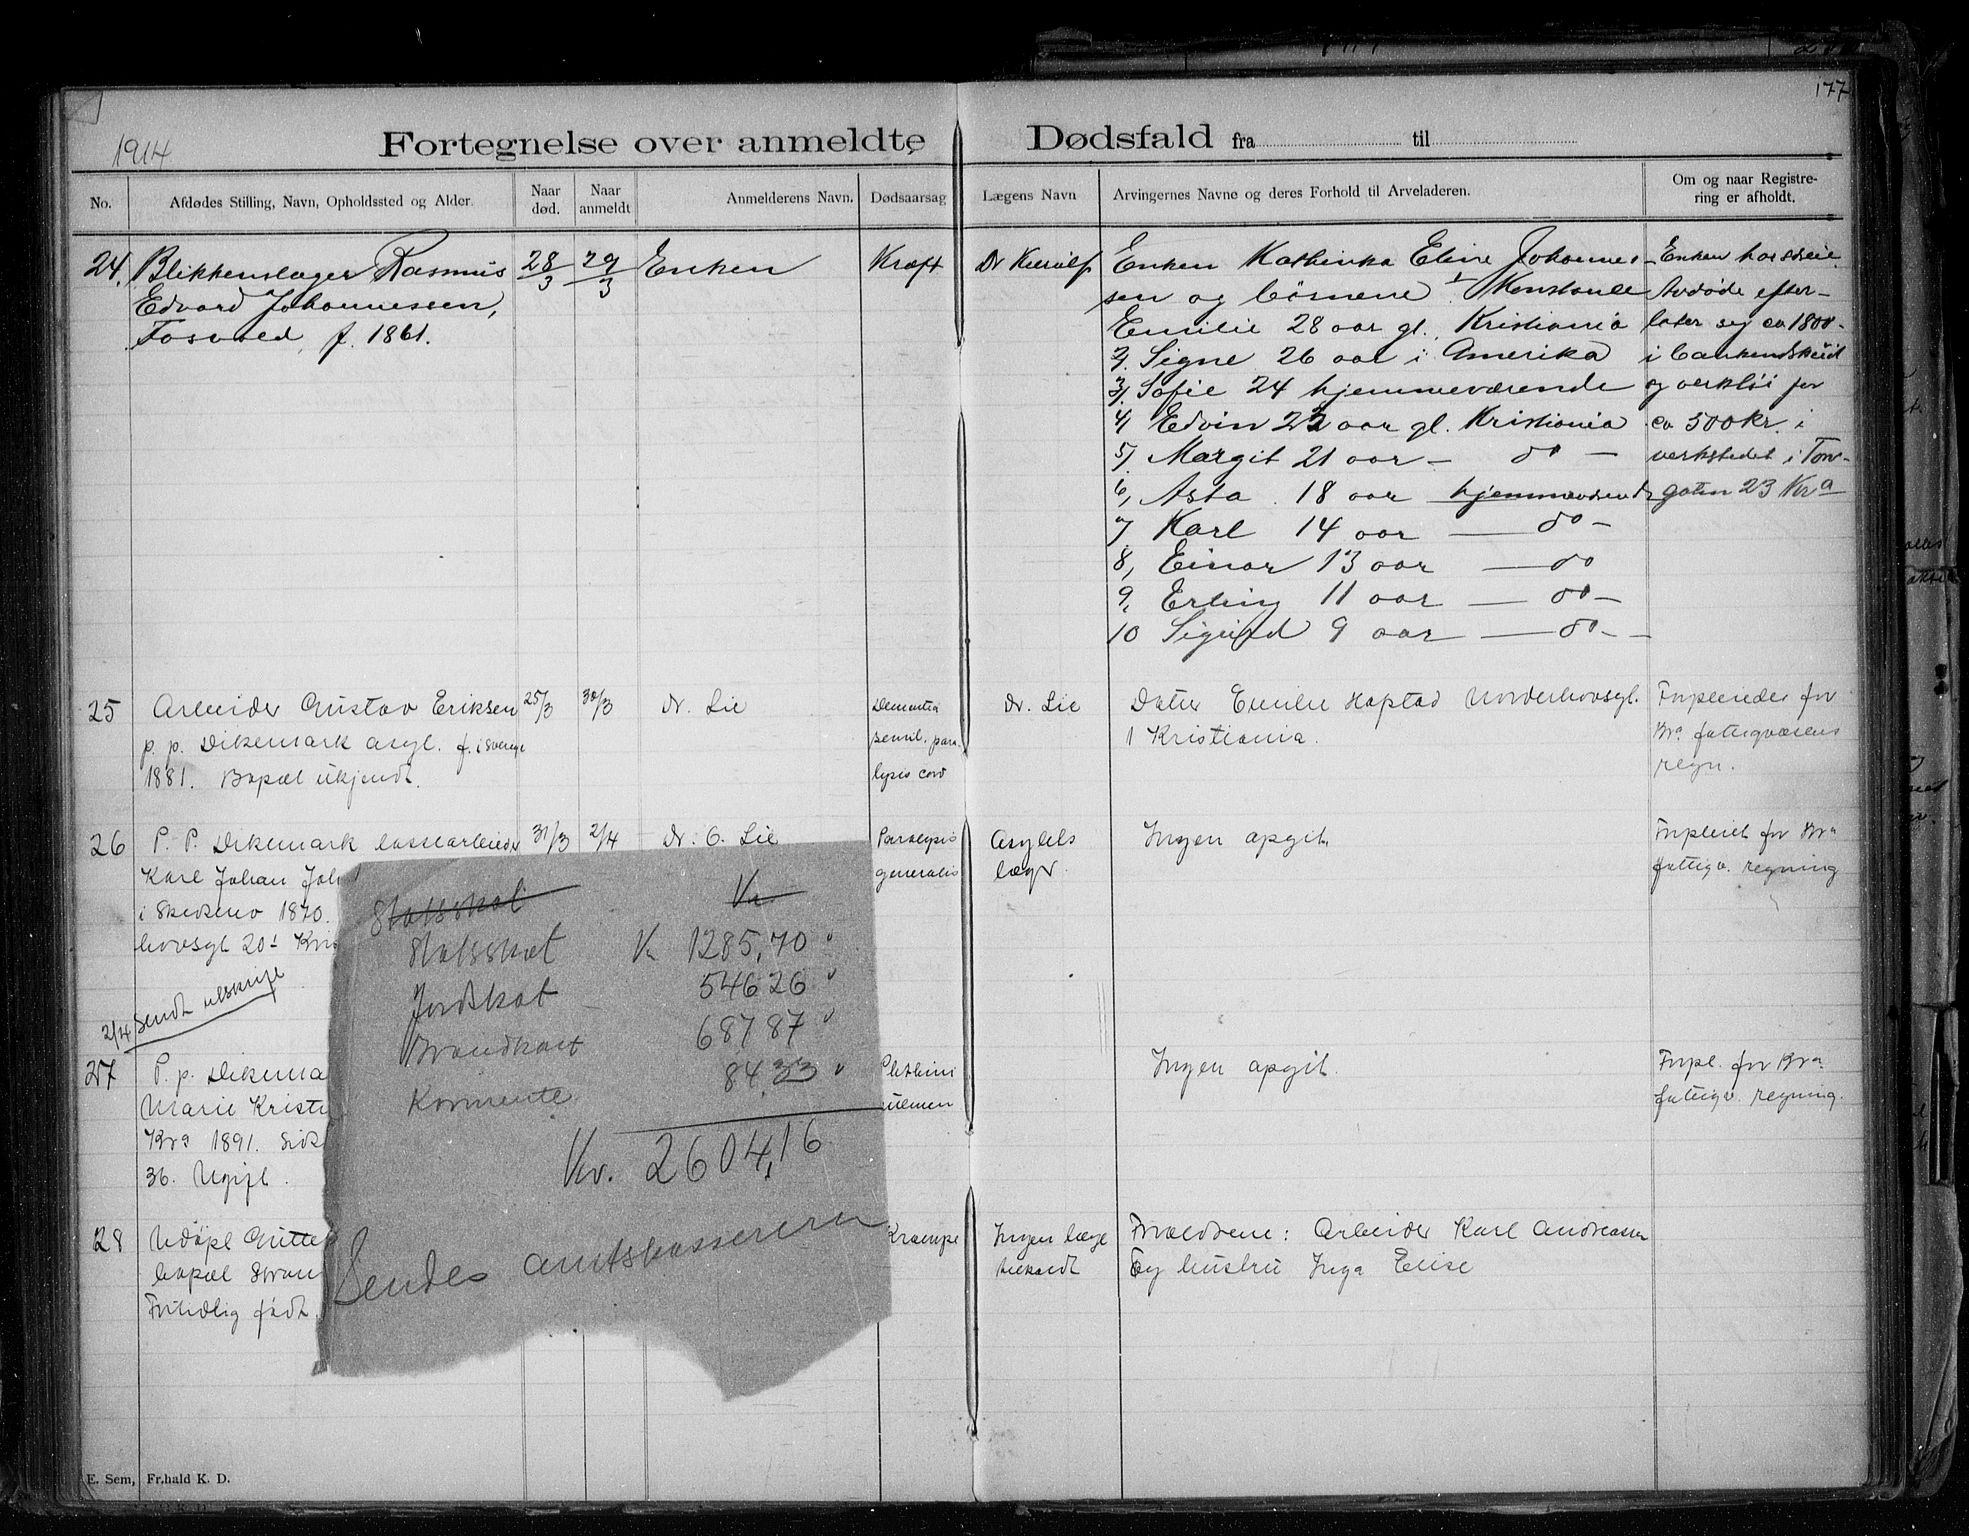 177
1914
Fortegnelse over anmeldte Dødsfald fra til
No. Afdødes Stilling, Navn, Opholdssted og Alder. Naar død. Naar anmeldt Anmelderens Navn. Dødsaarsag Lægens Navn Arvingernes Navne og deres Forhold til Arveladeren. Om og naar Registrering er afholdt.
24. Blikkenslager Rasmus
Edvard Johannessen,
f. 1861.
28/3
29/3
Enken
Kræft
Dr
Enken Kathinka Eline Johannes-
sen og børnene 1.
Emilie 28 aar gl. Kristiania
2, Signe 26 aar i Amerika
3, Sofie 24 hjemmeværende
4, Edvin 23 aar gl. Kristiania
5, Margit 21 aar - do -
6, Asta 18 aar
7, Karl 14 aar — do -
8, Einar 13 aar — do
9, Erling 11 aar — do -
10 Sigurd 9 aar — do -
Enken har
Avdøde efter-
later sig ca 1800-
i
og verktøi for
ca 500 kr. i
verkstedet i Torv-
gaten 23 Kra
25 Arbeider Gustav Eriksen
p. p. Dikemark asyl. f. i Sverige
1881. Bopæl ukjendt.
25/3
30/3
Dr. Lie
Dementia
senil. para-
lysis cord
Dr. Lie
Datter Emilie Hapstad Norderhovsgt.
1 Kristiania.
Forpleiedes for
Kra fattigvæsens
regn.
26 P. P. Dikemark løsearbeider
Karl Johan Joh
i Skedsmo 1870.
hovsgt 20 Kri
31/3
2/4
Dr. O. Lie
Paralysis
generalis
Asylets
læge.
Ingen opgit.
Forpleiet for Kra
fattigv. regning
2/4 Sendt utskrift
27 P. p. Dikema
Marie Kristi
Kra 1891.
36. Ugift.
Ingen opgit.
Forpl. for Kra
fattigv. regning.
28 Udøpt Gutte
bopæl Stran
født.
Krampe
Ingen læge
tilkaldt
Forældrene: Arbeider Karl Andreassen
og hustru Inga Elise
Statsskat Kr
Statsskat Kr 1285,70 "
Jordskat 546 26 "
Brandkont 687 87 "
84 33 "
Kr. 2604,16
Sendes amtskassereren
E. Sem, Fr.hald K. D.